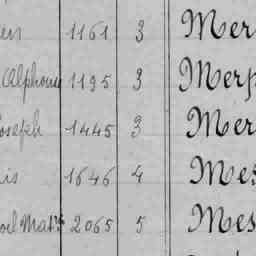 en 1161 3 Mer
Alphonse 1195 3 Merp
Joseph 1445 3 Mer
is 1646 4 Mes
oel 2065 5 Mes